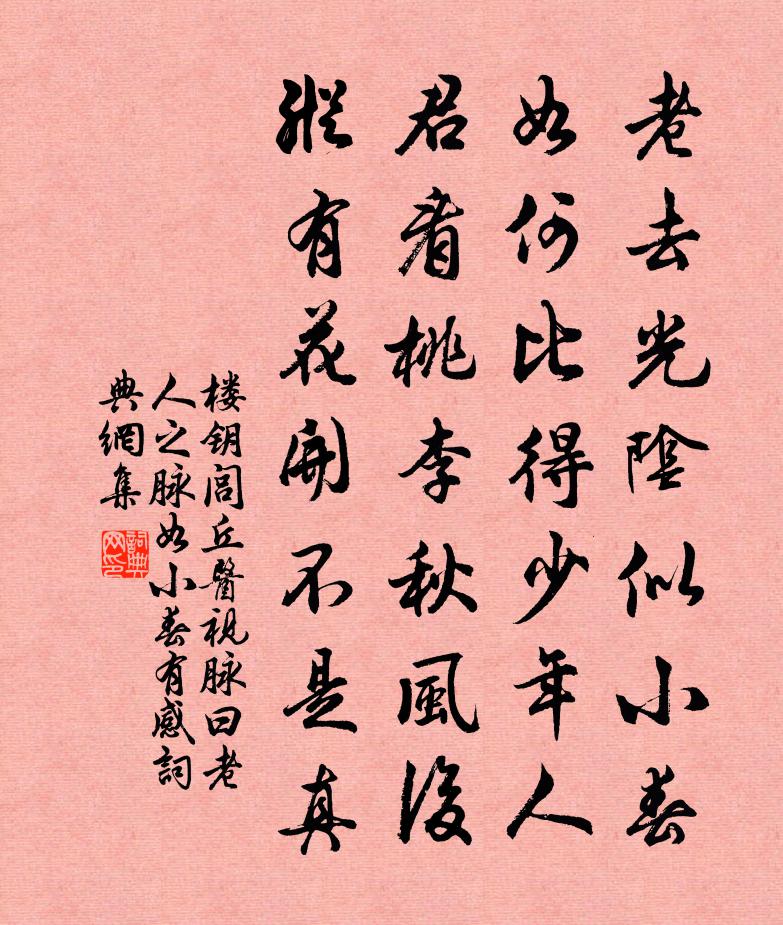 老去光陰似小春
如何比得少年人
君看桃李秋風後
縱有花開不是真
楼钥闾丘醫視脉曰老
人之脉如小春有感詞
典網集
詞典
网印